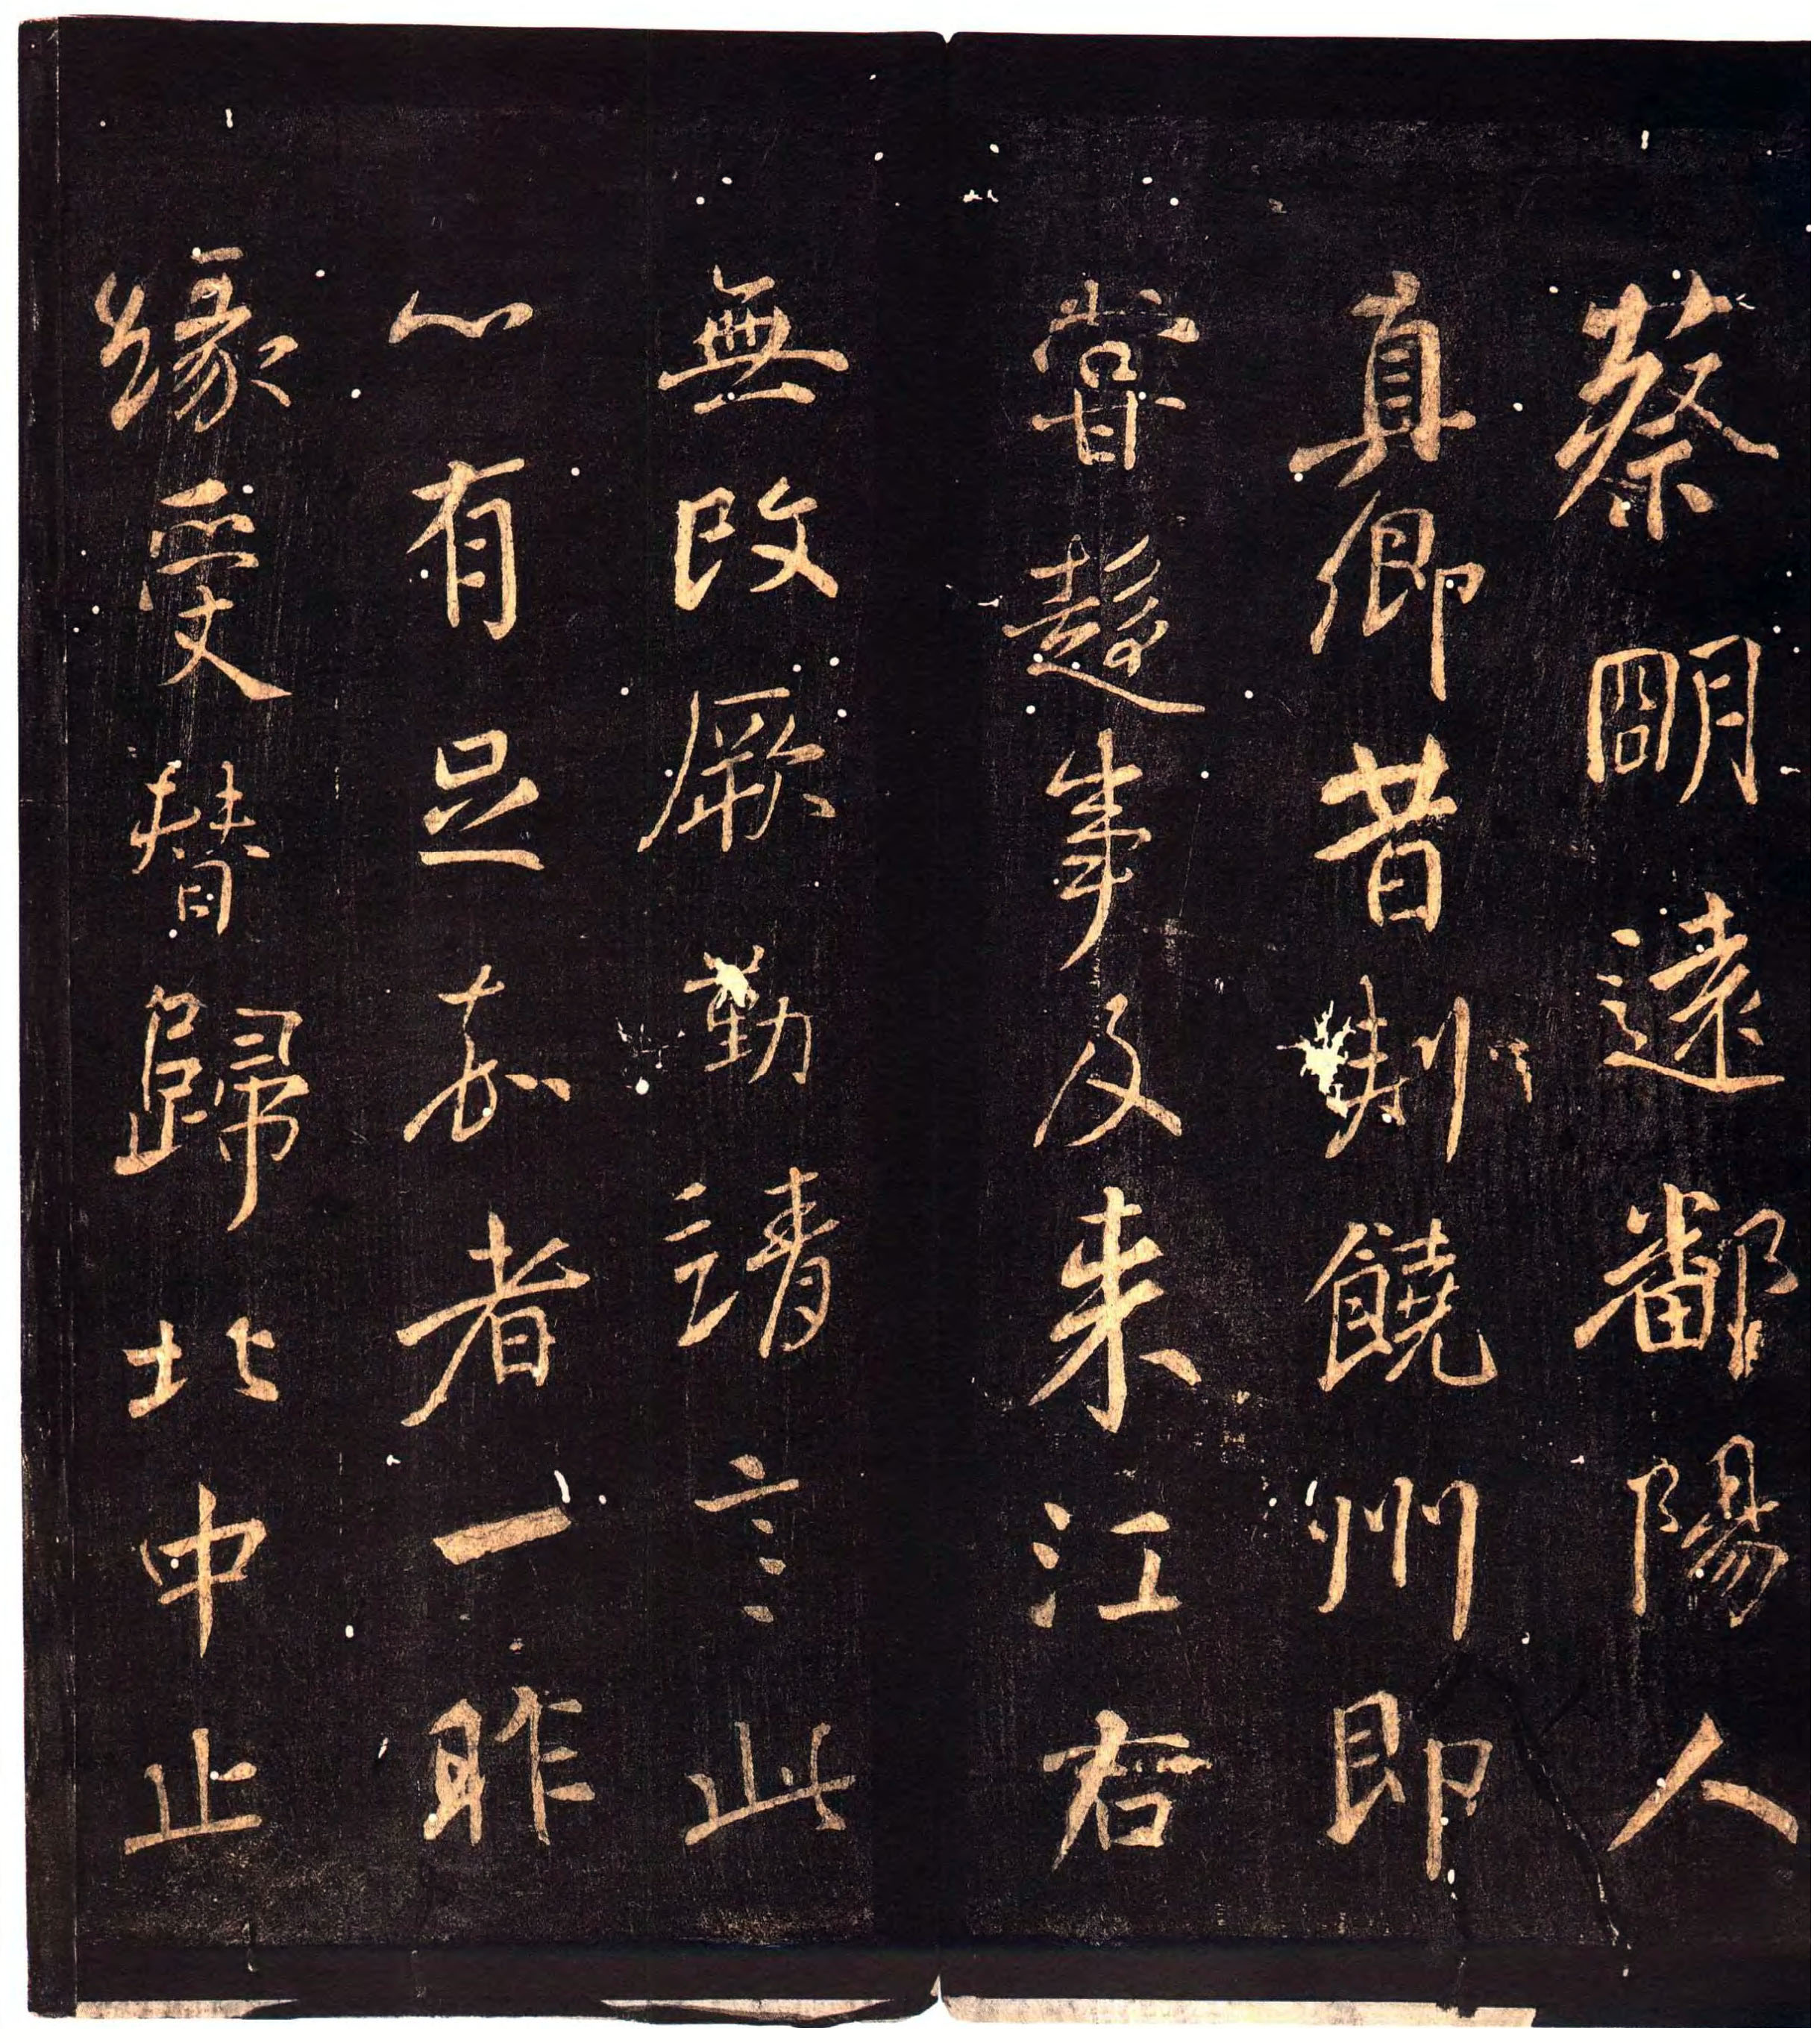 蔡明遠鄱陽人
真卿昔刺饒州即
嘗趨事及来江右
無改厥勤請言此
心有足嘉者一昨
緣受替歸北中止